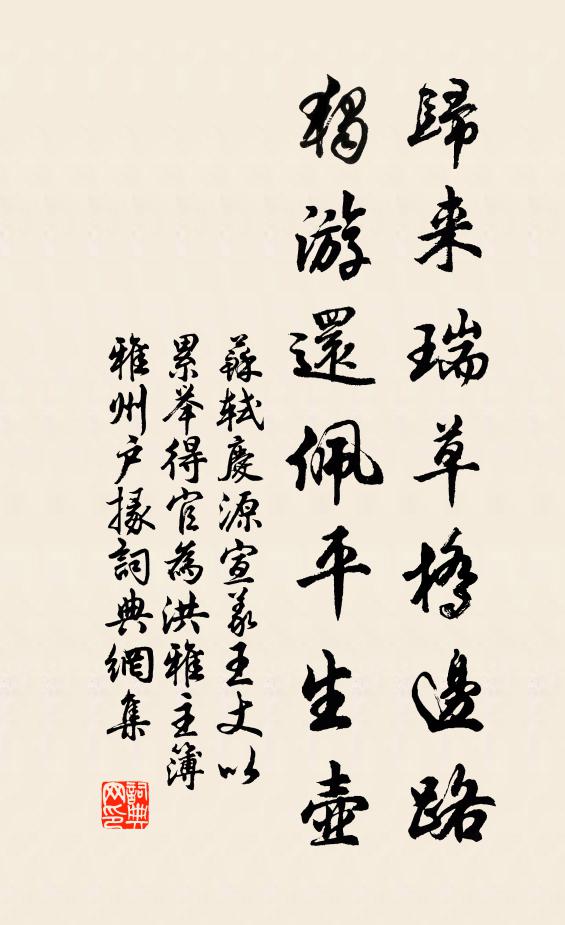 歸来瑞草橋邊路
獨游還佩平生壺
蘇軾慶源宣義王丈以
累举得官為洪雅主簿
雅州户掾詞典網集
詞典网印